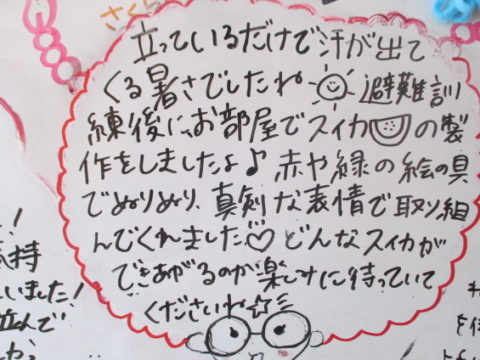 さくら
立っているだけで汗が出て
くる暑さでしたね 避難訓
練後に、お部屋でスイカの製
作をしましたよ♪ 赤や緑の絵の具
でぬりぬり、真剣な表情で取り組
んでくれました♡ どんなスイカが
できあがるのか楽しみに待っていて
くださいね☆
！
持
いました！
並んで